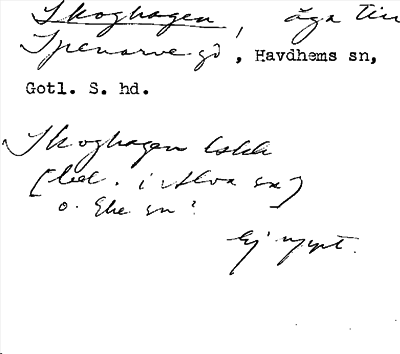 Skoghagen, äga till
Spenarve gd, Havdhems sn,
Gotl. S. hd.
Skoghagen
(bel. i Alva sn)
o. Eke sn?
Ej nytt.